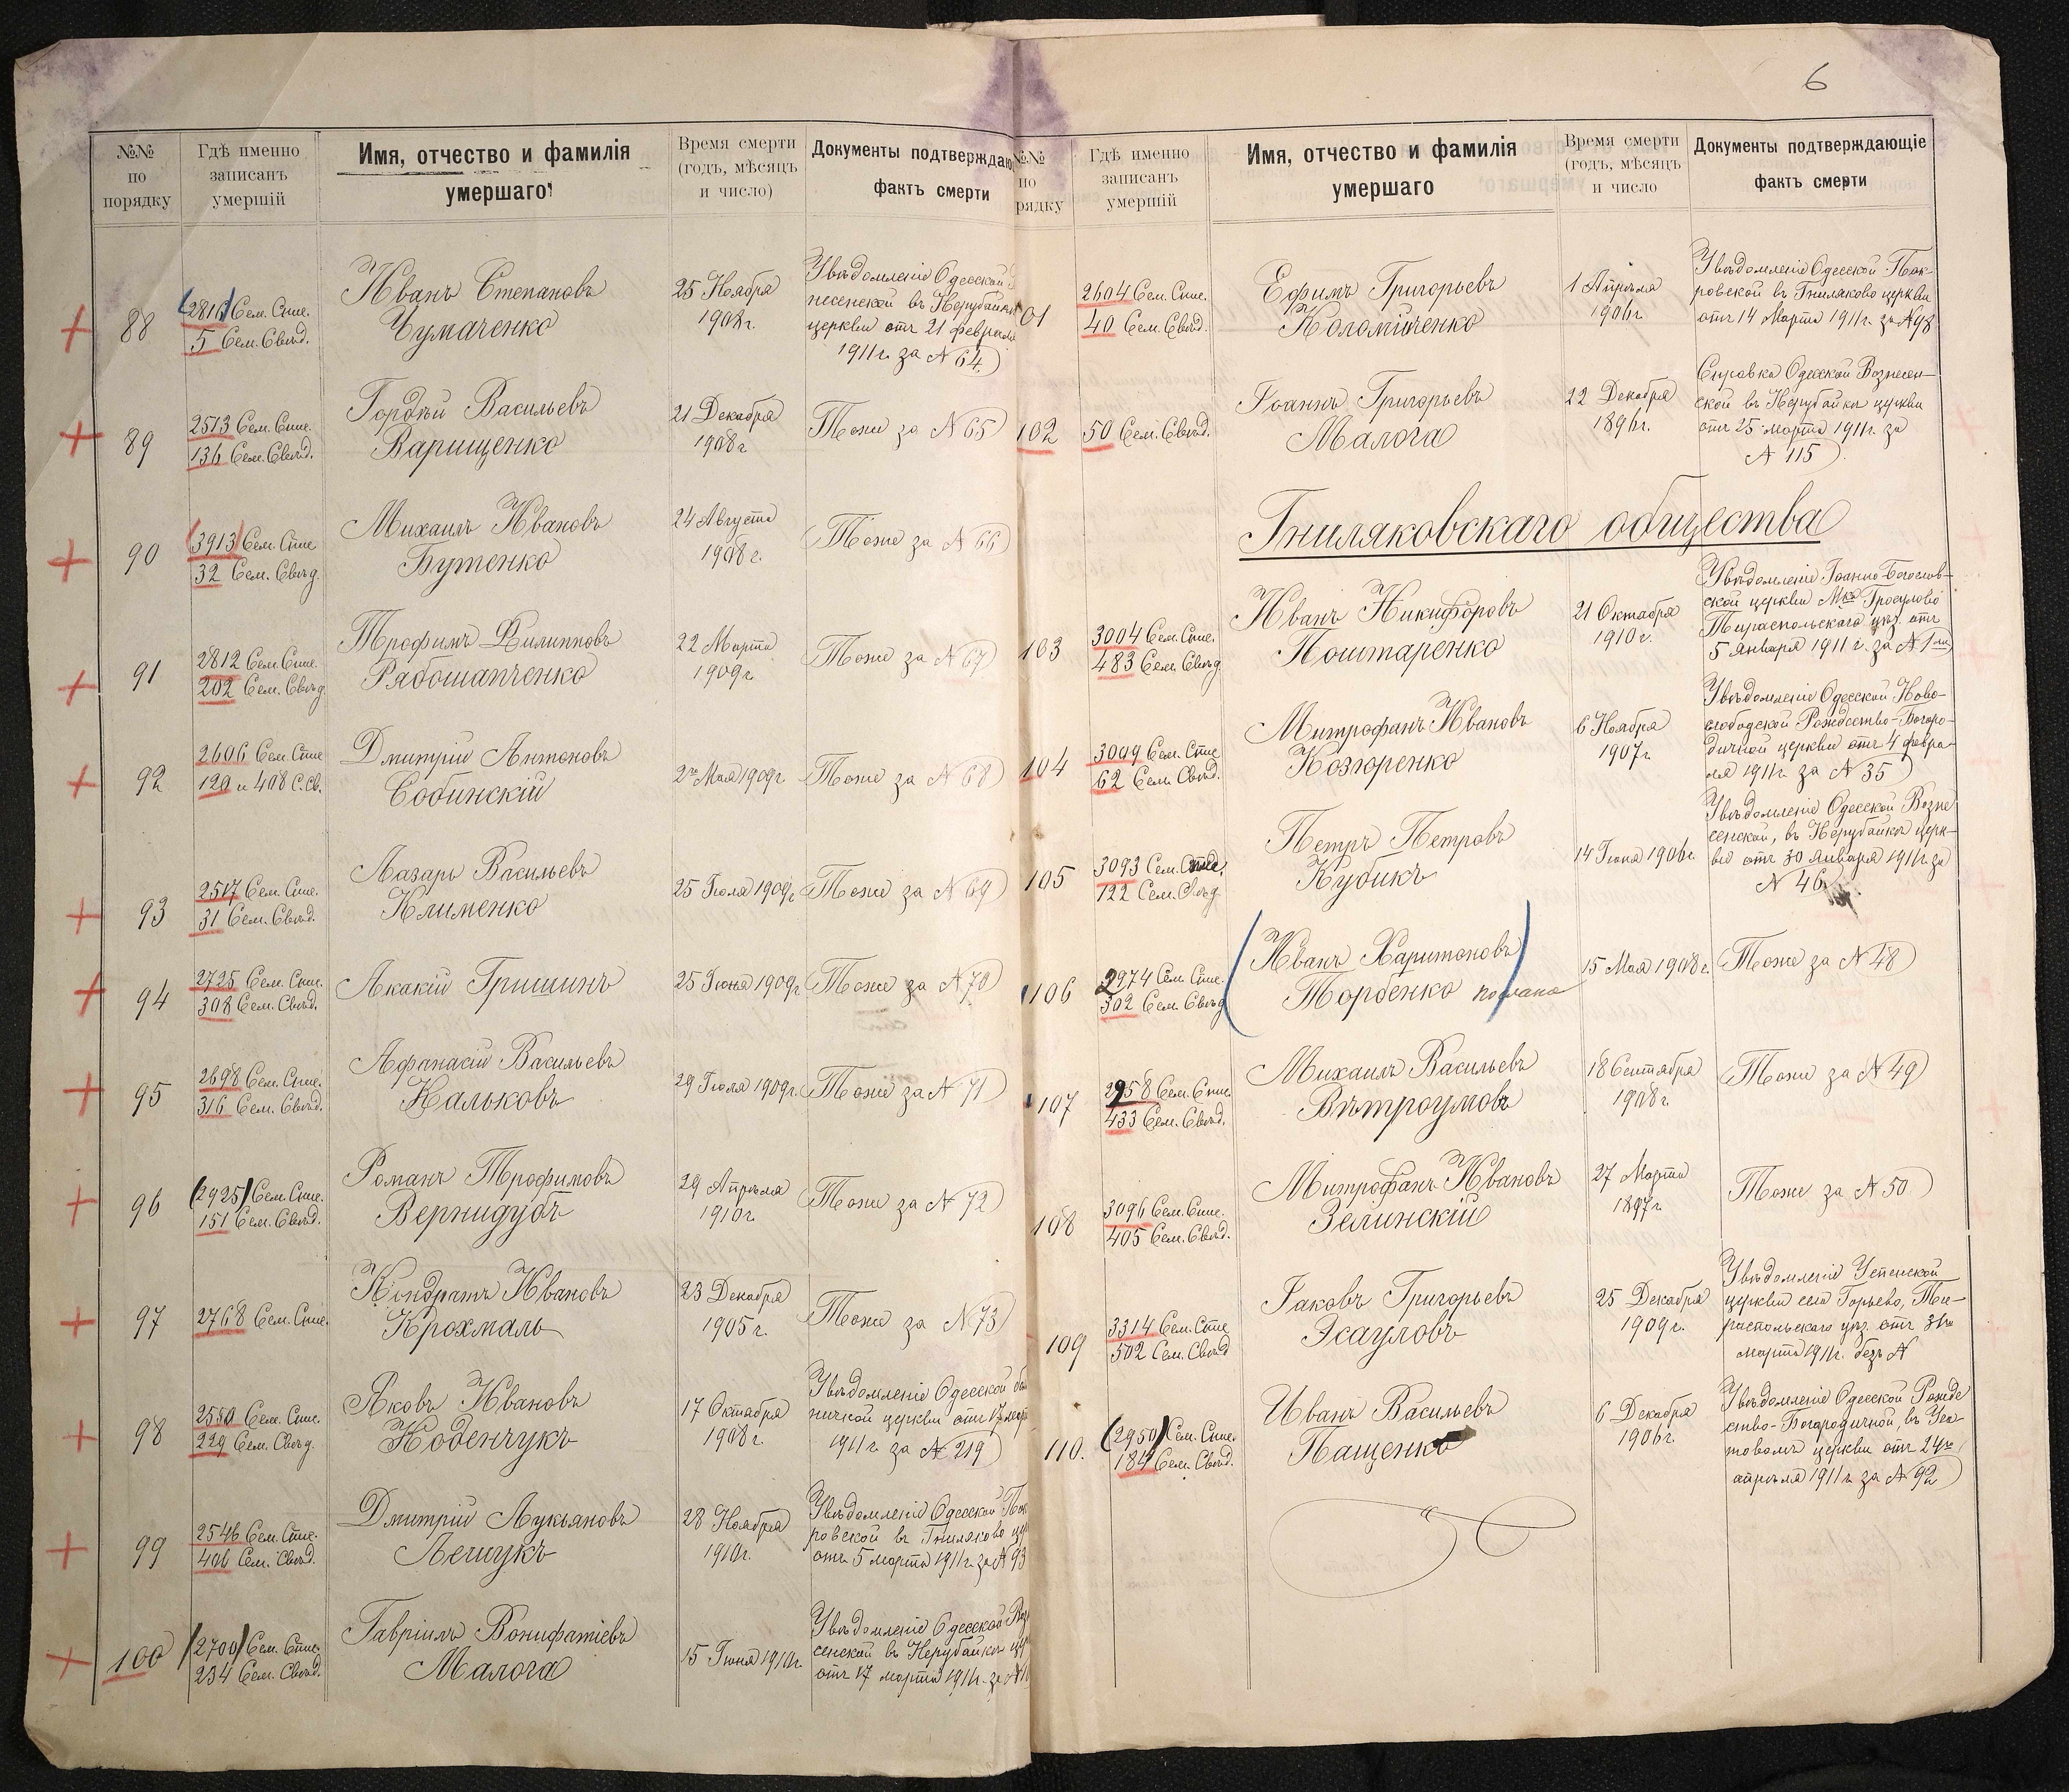 №№ по порядку
Гдѣ именно записанъ умершій
Имя, отчество и фамилія умершаго
Время смерти (годъ, мѣсяцъ и число)
Документы подтверждаю
фактъ смерти
88
2816 Сем. Спис.
5 Сем. Свѣд.
Иванъ Степановъ
Чумаченко
25 Ноября
1908 г.
Увѣдомленіе Одесской
несенской въ Нерубайкѣ
церкви отъ 21 февраля
1911 г. за № 64
89
2513 Сем. Спис.
136 Сем. Свѣд.
Гордѣй Васильевъ
Варищенко
21 Декабря
1908 г.
Тоже за № 65
90
3913 Сем. Спис.
32 Сем. Свѣд.
Михаилъ Ивановъ
Бутенко
24 Августа
1908 г.
Тоже за № 66
91
2812 Сем. Спис.
202 Сем. Свѣд.
Трофимъ Филипповъ
Рябошапченко
22 Марта
1909 г.
Тоже за № 67
92
2606 Сем. Спис.
120 и 408 С. Св.
Дмитрій Антоновъ
Собинскій
2го Мая 1909 г.
Тоже за № 68
93
2517 Сем. Спис.
31 Сем. Свѣд.
Лазарь Васильевъ
Клименко
25 Іюля 1909 г.
Тоже за № 69
94
2725 Сем. Спис.
308 Сем. Свѣд.
Акакій Гришинъ
25 Іюня 1909 г.
Тоже за № 70
95
2698 Сем. Спис.
316 Сем. Свѣд.
Афанасій Васильевъ
Кальковъ
29 Іюля 1909 г.
Тоже за № 71
96
(2925) Сем. Спис.
151 Сем. Свѣд.
Романъ Трофимовъ
Вернидубъ
29 Апрѣля
1910 г.
Тоже за № 72
97
2768 Сем. Спис.
Кондратъ Ивановъ
Крохмаль
23 Декабря
1905 г.
Тоже за № 73
98
2550 Сем. Спис.
229 Сем. Свѣд.
Яковъ Ивановъ
Коденчукъ
17 Октября
1908 г.
Увѣдомленіе Одесской
ничной церкви отъ 17 март
1911 г. за № 219
99
2546 Сем. Спис.
406 Сем. Свѣд.
Дмитрій Лукьяновъ
Лещукъ
28 Ноября
1910 г.
Увѣдомленіе Одесской Пок
ровской въ Гниляково
отъ 5 марта 1911 г. за № 93
100
(2700) Сем. Спис.
234 Сем. Свѣд.
Гавріилъ Вонифатіевъ
Малога
15 Іюня 1910 г.
Увѣдомленіе Одесской
сенской въ Нерубайкѣ
отъ 17 марта 1911 г. за №
6
№№ по рядку
Гдѣ именно записанъ умершій
Имя, отчество и фамилія умершаго
Время смерти (годъ, мѣсяцъ и число
Документы подтверждающіе
фактъ смерти
01
2604 Сем. Спис.
40 Сем. Свѣд.
Ефимъ Григорьевъ
Коломійченко
1 Апрѣля
1906 г.
Увѣдомленіе Одесской Пок-
ровской въ Гниляково церкви
отъ 14 Марта 1911 г. за № 98
102
50 Сем. Свѣд.
Іоаннъ Григорьевъ
Малога
22 Декабря
1896 г.
Справка Одесской Вознесен-
ской въ Нерубайкѣ церкви
отъ 25 марта 1911 г. за
№ 115
Гниляковскаго общества
103
3004 Сем. Спис.
483 Сем. Свѣд.
Иванъ Никифоровъ
Поштаренко
21 Октября
1910 г.
Увѣдомленіе Іоанно-Богослов-
ской церкви Мка Гросулово
Тираспольскаго уѣз. отъ
5 Января 1911 г. за № 1м
104
3009 Сем. Спис.
62 Сем. Свѣд.
Митрофанъ Ивановъ
Козоренко
6 Ноября
1907 г.
Увѣдомленіе Одесской Ново-
слободской Рождество-Богоро-
дичной церкви отъ 4 февра-
ля 1911 г. за № 35
105
3093 Сем. Спис.
122 Сем. Свѣд.
Петръ Петровъ
Кубикъ
14 Іюня 1906 г.
Увѣдомленіе Одесской Возне
сенской, въ Нерубайкѣ церк-
ви отъ 30 Января 1911 г. за
№ 46
106
2974 Сем. Спис.
302 Сем. Свѣд.
(Иванъ Харитоновъ
Торбенко)
15 Мая 1908 г.
Тоже за № 48
107
2958 Сем. Спис.
433 Сем. Свѣд.
Михаилъ Васильевъ
Вѣтроумовъ
18 Сентября
1908 г.
Тоже за № 49
108
3096 Сем. Спис.
405 Сем. Свѣд.
Митрофанъ Ивановъ
Зелинскій
27 Марта
1897 г.
Тоже за № 50
109
3314 Сем. Спис.
502 Сем. Свѣд.
Іаковъ Григорьевъ
Эсауловъ
25 Декабря
1909 г.
Увѣдомленіе Успенской
церкви села Горьево, Ти-
распольскаго уѣз. отъ
марта 1911 г. безъ №
110.
(2950) Сем. Спис.
184 Сем. Свѣд.
Иванъ Васильевъ
Пащенко
6 Декабря
1906 г.
Увѣдомленіе Одесской Рожде
ство-Богородичной, въ Уса-
товомъ церкви отъ 24го
апрѣля 1911 г. за № 92